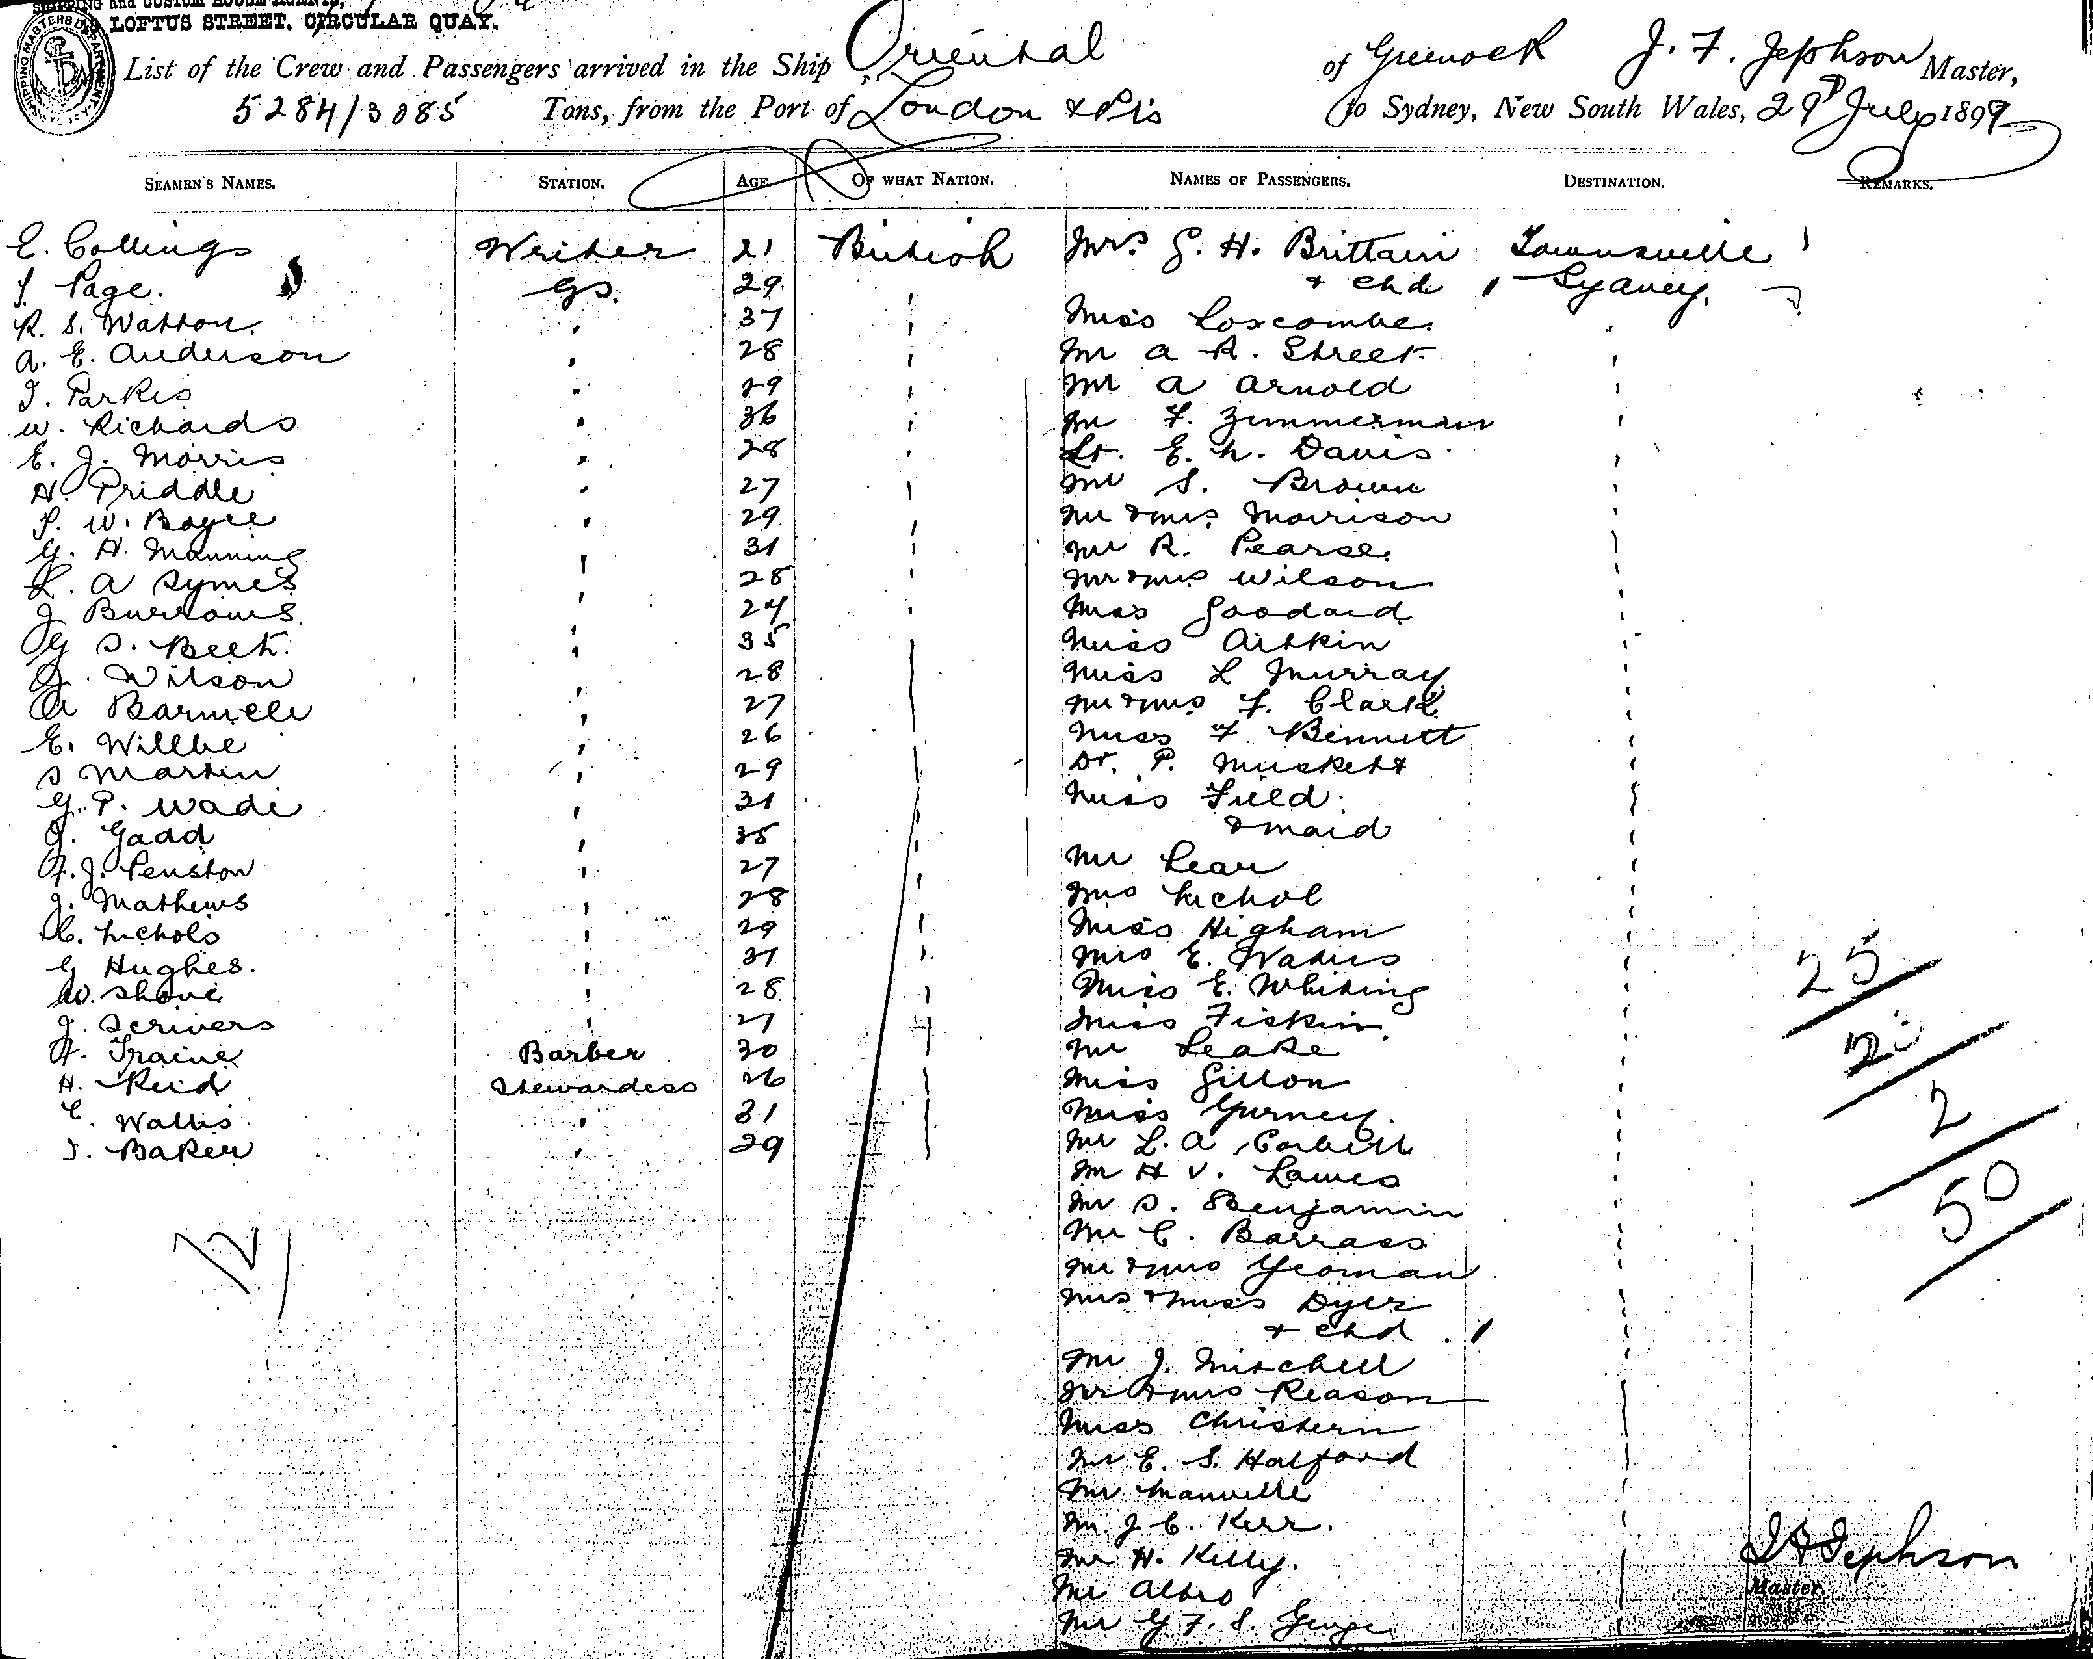 SHIPPING and CUSTOM HOUSE AGENTS,
LOFTUS STREET, CIRCULAR QUAY.
SHIPPING MASTERS DEPARTMENT
List of the Crew and Passengers arrived in the Ship Oriental of Greenock J. F. Jephson Master,
5284/3085 Tons, from the Port of London & Pts to Sydney, New South Wales, 29th July 1897
SEAMEN'S NAMES. STATION. AGE. OF WHAT NATION. NAMES OF PASSENGERS. DESTINATION. REMARKS.
E. Collings Writer 21 British Mrs. G. H. Brittain Townsville
Page. GS. 29 & chd 1 Sydney.
R. S. Watson. " 37 " Miss Loscombe "
A. E. Anderson " 28 " Mr A R. Street "
J. Parkes " 29 " Mr A Arnold "
W. Richards " 36 " Mr F. Zimmerman "
E. J. Morris " 28 " Lt. E. N. Davis "
H. Priddle " 27 " Mr S. Brown "
P. W. Boyce " 29 " Mr & Mrs Morrison "
G. H. Manning " 31 " Mr R. Pearse "
L. A Symes " 28 " Mr & Mrs Wilson "
J Burrows " 24 " Miss Goodard "
G S. Beet. " 35 " Miss Aitkin "
J. Wilson " 28 " Miss L Murray "
A " 27 " Mr & Mrs F. Clark "
E. Willbe " 26 " Miss F. Bennett "
S Martin " 29 " Dr. P. Muskett "
G. P. Wade " 31 " Miss Field "
J. Gadd " 35 " & maid "
A. J. Penston " 27 " Mr Lear "
J. Mathews " 28 " Mrs Nichol "
C. Nichols " 29 " Miss Higham "
G Hughes. " 31 " Mrs E. "
W. Shove " 28 " Miss E. Whiting "
J. Scrivers " 27 " Miss Fiskin "
A. Traine Barber 30 " Mr Leake "
H. Reid Stewardess 26 " Miss Gillon "
C. Wallis " 31 " Miss Gurney. "
J. Baker " 29 " Mr L. A Corbett "
Mr H V. Lawes "
Mr S. Benjamin "
Mr C. Barrass "
Mr & Mrs Yeoman "
Mrs & Miss Dyer "
& chd 1 "
Mr J. Mitchell "
Mr & Mrs Reason "
Miss Christern "
Mr E. S. Halford "
Mr Manville "
Mr J C. Kerr. "
Mr H. Kelly. "
Mr
Mr G F. S. George
25
2
50
J F Jephson
Master.